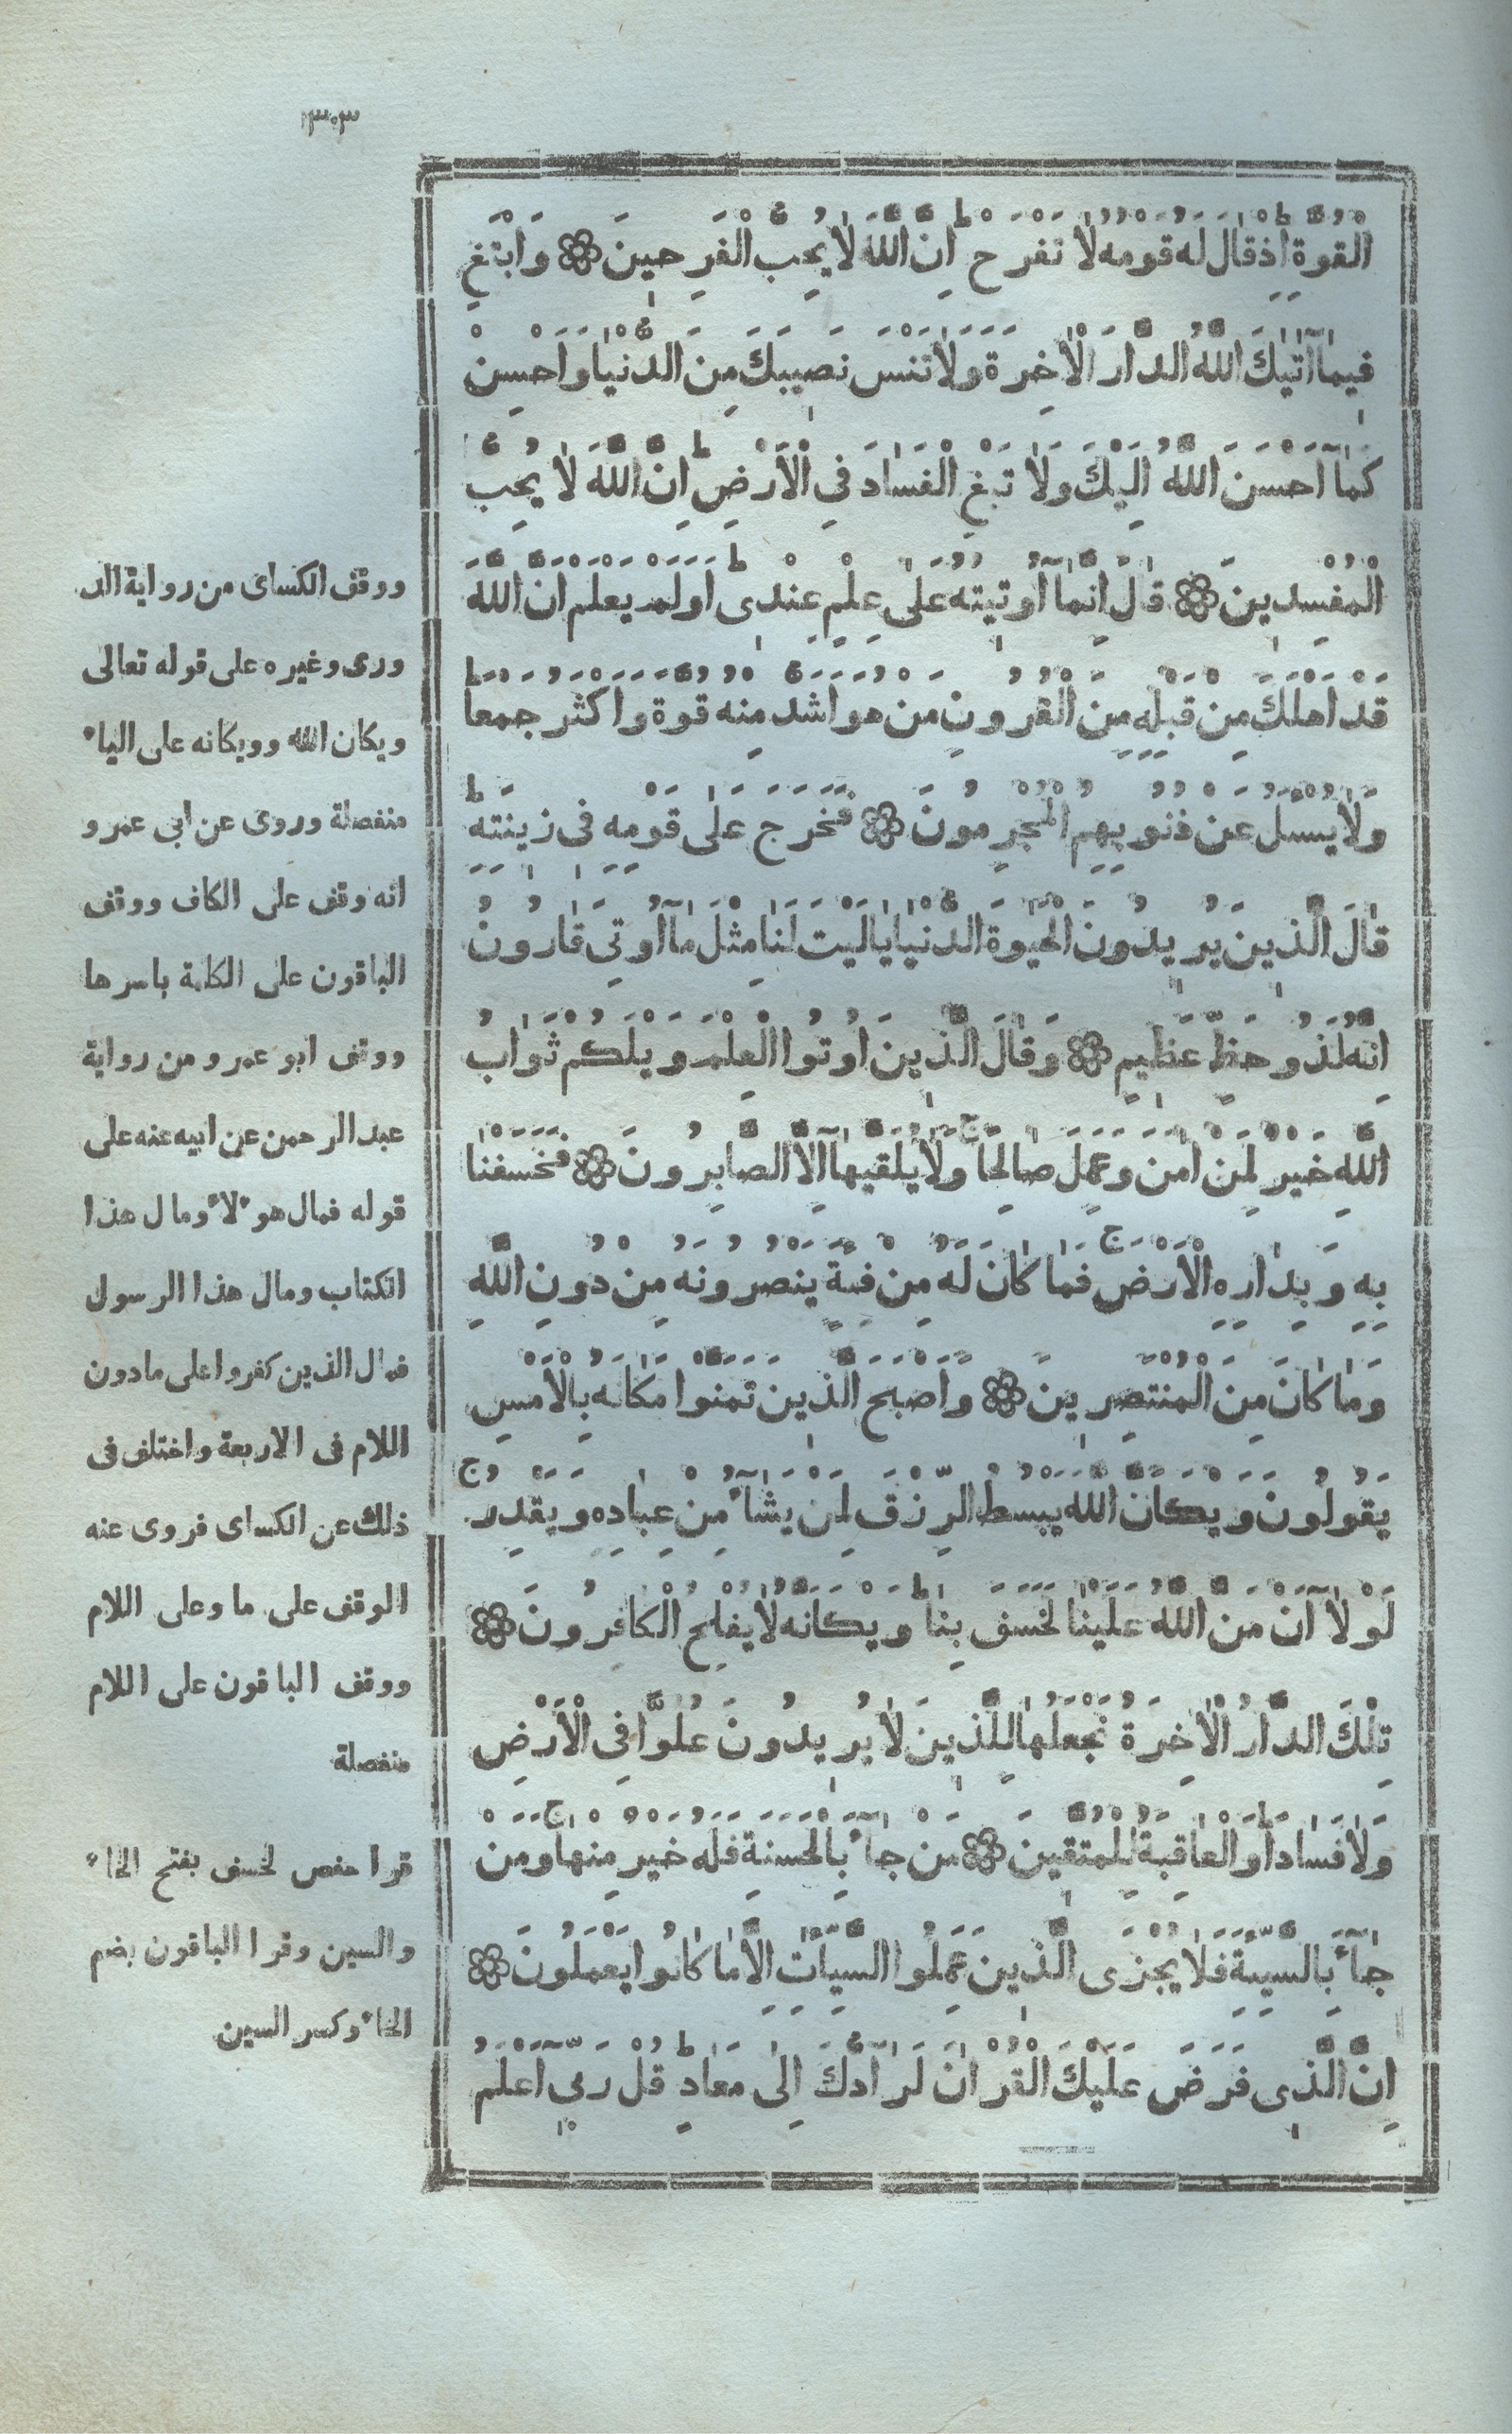 ٣٠٣
الْقُوَّةِ اِذْ قَالَ لَهُ قَوْمُهُ لَا تَفْرَحْ ط اِنَّ اللّٰهَ لَا يُحِبُّ الْفَرِحِينَ ۞ وَابْتَغِ
فِيمَآ اٰتٰيكَ اللّٰهُ الدَّارَ الْاٰخِرَةَ وَلَا تَنْسَ نَصِيبَكَ مِنَ الدُّنْيَا وَاَحْسِنْ
كَمَآ اَحْسَنَ اللّٰهُ اِلَيْكَ وَلَا تَبْغِ الْفَسَادَ فِى الْاَرْضِ ط اِنَّ اللّٰهَ لَا يُحِبُّ
الْمُفْسِدِينَ ۞ قَالَ اِنَّمَآ اُوتِيتُهُ عَلٰى عِلْمٍ عِنْدِى ط اَوَلَمْ يَعْلَمْ اَنَّ اللّٰهَ
قَدْ اَهْلَكَ مِنْ قَبْلِهِ مِنَ الْقُرُونِ مَنْ هُوَ اَشَدُّ مِنْهُ قُوَّةً وَاَكْثَرُ جَمْعًا ط
وَلَا يُسْـَٔلُ عَنْ ذُنُوبِهِمُ الْمُجْرِمُونَ ۞ فَخَرَجَ عَلٰى قَوْمِهِ فِى زِينَتِهِ ط
قَالَ الَّذِينَ يُرِيدُونَ الْحَيٰوةَ الدُّنْيَا يَا لَيْتَ لَنَا مِثْلَ مَآ اُوتِىَ قَارُونُ
اِنَّهُ لَذُو حَظٍّ عَظِيمٍ ۞ وَقَالَ الَّذِينَ اُوتُوا الْعِلْمَ وَيْلَكُمْ ثَوَابُ
اللّٰهِ خَيْرٌ لِمَنْ اٰمَنَ وَعَمِلَ صَالِحًا ج وَلَا يُلَقّٰيهَآ اِلَّا الصَّابِرُونَ ۞ فَخَسَفْنَا
بِهِ وَبِدَارِهِ الْاَرْضَ ج فَمَا كَانَ لَهُ مِنْ فِئَةٍ يَنْصُرُونَهُ مِنْ دُونِ اللّٰهِ
وَمَا كَانَ مِنَ الْمُنْتَصِرِينَ ۞ وَاَصْبَحَ الَّذِينَ تَمَنَّوْا مَكَانَهُ بِالْاَمْسِ
يَقُولُونَ وَيْكَاَنَّ اللّٰهَ يَبْسُطُ الرِّزْقَ لِمَنْ يَشَآءُ مِنْ عِبَادِهِ وَيَقْدِرُ ج
لَوْلَآ اَنْ مَنَّ اللّٰهُ عَلَيْنَا لَخَسَفَ بِنَا ط وَيْكَاَنَّهُ لَا يُفْلِحُ الْكَافِرُونَ ۞
تِلْكَ الدَّارُ الْاٰخِرَةُ نَجْعَلُهَا لِلَّذِينَ لَا يُرِيدُونَ عُلُوًّا فِى الْاَرْضِ
وَلَا فَسَادًا ط وَالْعَاقِبَةُ لِلْمُتَّقِينَ ۞ مَنْ جَآءَ بِالْحَسَنَةِ فَلَهُ خَيْرٌ مِنْهَا ج وَمَنْ
جَآءَ بِالسَّيِّئَةِ فَلَا يُجْزَى الَّذِينَ عَمِلُوا السَّيِّـَٔاتِ اِلَّا مَا كَانُوا يَعْمَلُونَ ۞
اِنَّ الَّذِى فَرَضَ عَلَيْكَ الْقُرْاٰنَ لَرَآدُّكَ اِلٰى مَعَادٍ ط قُلْ رَبِّىٓ اَعْلَمُ
ووقف الكساى من رواية الد
ورى وغيره على قوله تعالى
ويكان الله وويكانه على الياء
منفصلة وروى عن ابى عمرو
انه وقف على الكاف ووقف
الباقون على الكلمة باسرها
ووقف ابو عمرو من رواية
عبد الرحمن عن ابيه عنه على
قوله فمال هولاء ومال هذا
الكتاب ومال هذا الرسول
فمال الذين كفروا على مادون
اللام فى الاربعة واختلف فى
ذلك عن الكساى فروى عنه
الوقف على ما وعلى اللام
ووقف الباقون على اللام
منفصلة
قرا حفص لخسف بفتح الخاء
والسين وقرا الباقون بضم
الخاء وكسر السين